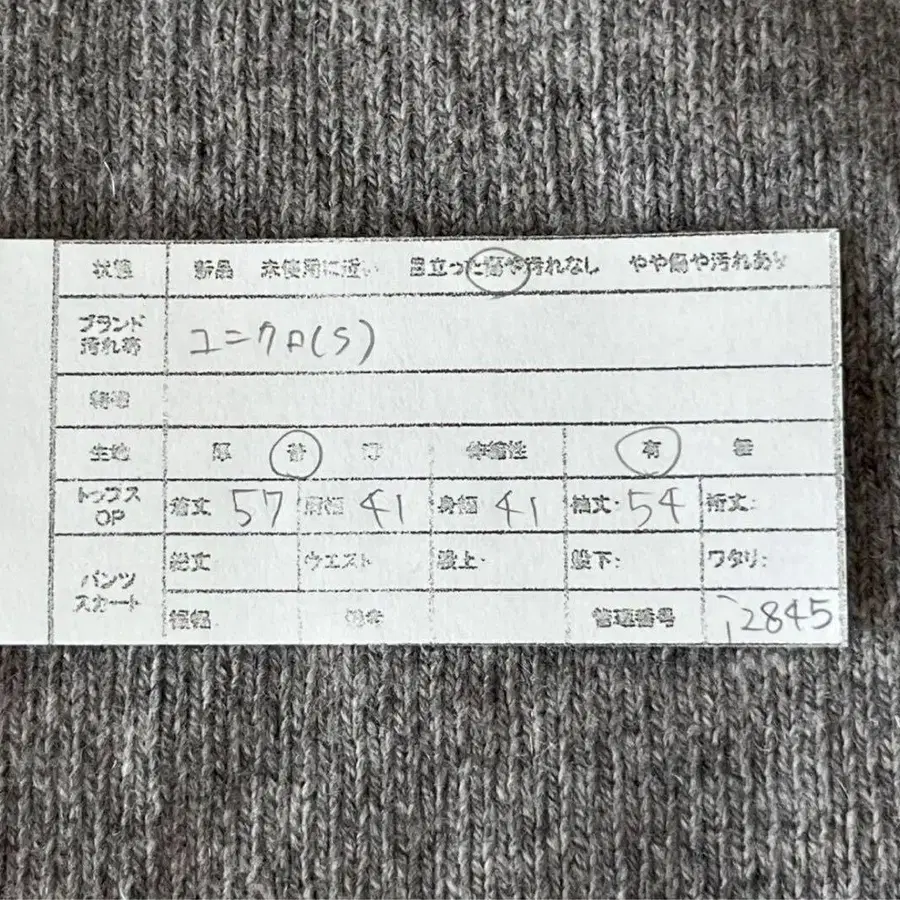 状態 新品 未使用に近い 目立った傷や汚れなし やや傷や汚れあり
ブランド
汚れ等 ユニクロ(S)
特徴
生地 厚 普 薄 伸縮性 有 無
トップス
OP 着丈 57 肩幅 41 身幅 41 袖丈: 54 裄丈:
パンツ
スカート 総丈 ウエスト 股上: 股下: ワタリ:
裾幅 備考 管理番号 12845